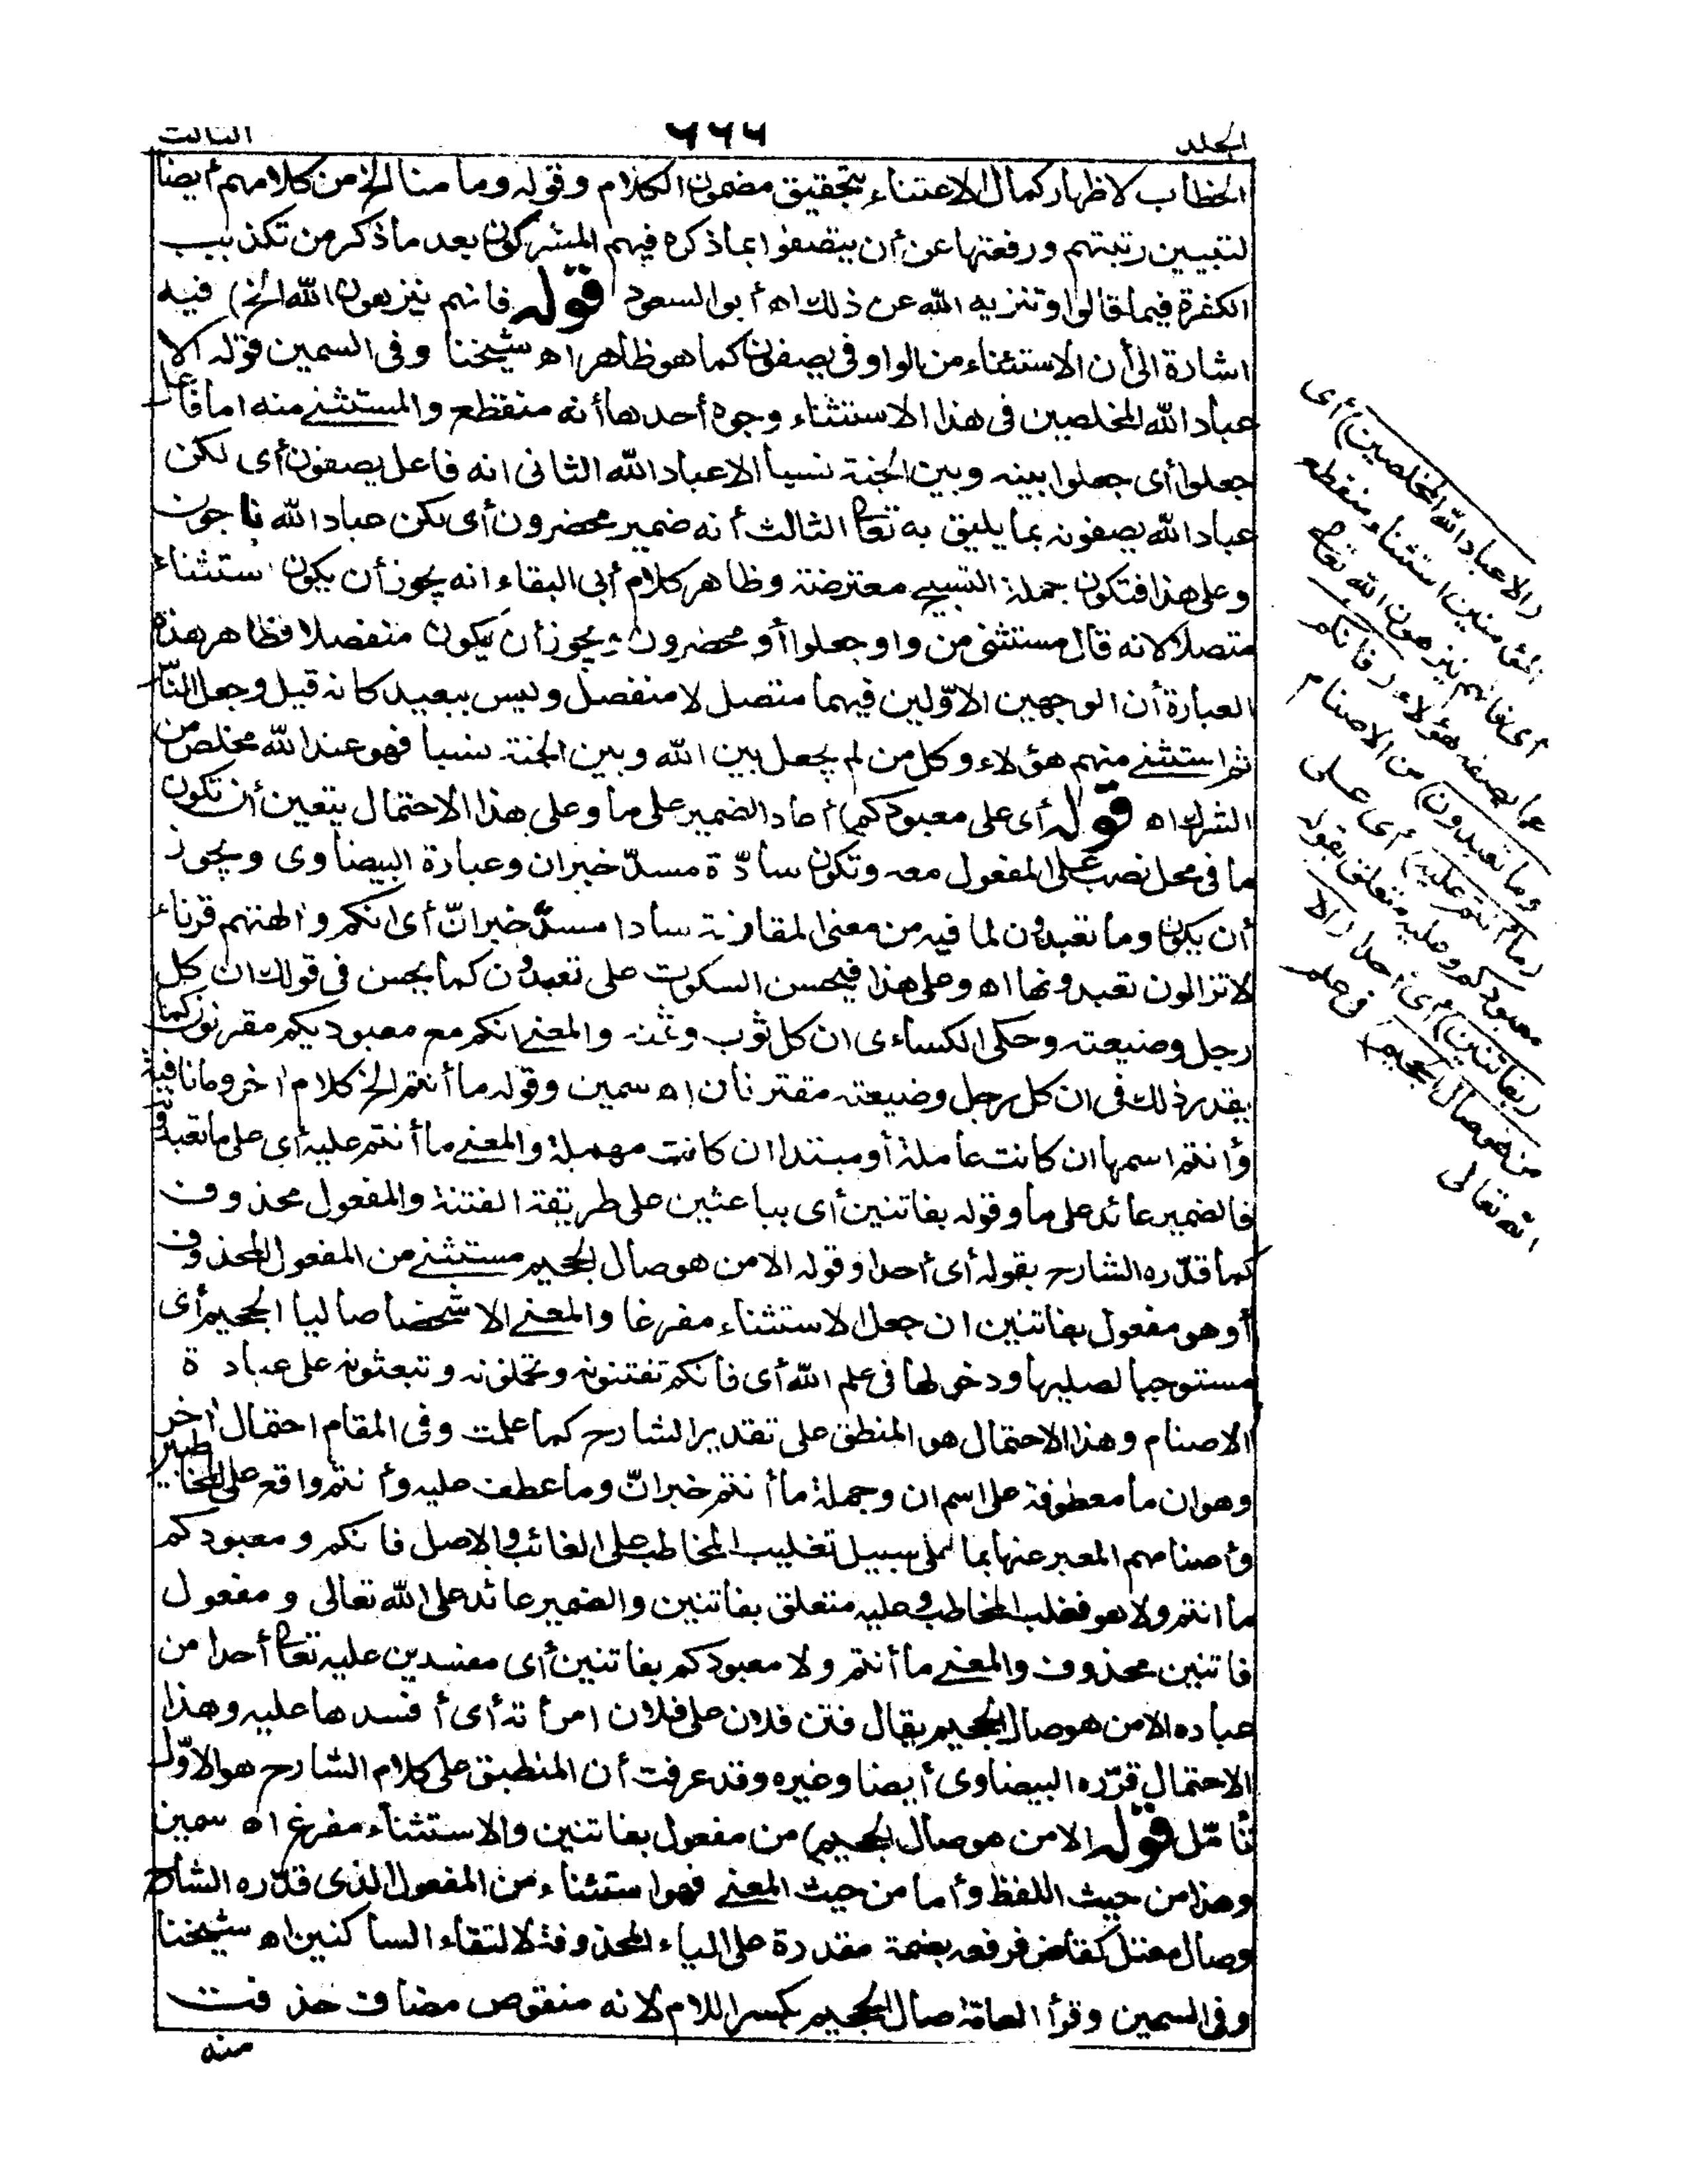 الجلد
٦٦٦
الثالث
الخطاب لاظهار كمال الاعتناء بتحقيق مضمون الكلام وقوله وما منا الخ من كلامهم أيضا
لتبيين رتبتهم ورفعتها عن أن يتصفوا بما ذكره فيهم المشركون بعد ما ذكر من تكذيب
الكفرة فيما قالوا وتنزيه الله عن ذلك اه أبو السعود قوله فانهم ينزهون الله الخ) فيه
اشارة الى أن الاستثناء من الواو فى يصفون كما هو ظاهر اه شيخنا وفى السمين قوله الا
عباد الله المخلصين فى هذا الاستثناء وجوه أحدها أنه منقطع والمستثنى منه اما فاعل
جعلوا أى جعلوا بينه وبين الجنة نسبا الا عباد الله الثانى انه فاعل يصفون أى لكن
عباد الله يصفونه بما يليق به تعا الثالث أنه ضمير محضرون أى لكن عباد الله ناجون
وعلى هذا فتكون جملة التسبيح معترضة وظاهر كلام أبى البقاء انه يجوز أن يكون استثناء
متصلا لانه قال مستثنى من واو جعلوا أو محضرون ويجوز أن يكون منفصلا فظاهر هذه
العبارة أن الوجهين الاوّلين فيهما متصل لا منفصل وليس ببعيد كانه قيل وجعل النّاس
ثم استثنى منهم هؤلاء وكل من لم يجعل بين الله وبين الجنة نسبا فهو عند الله مخلص من
الشرك اه قوله أى على معبودكم) أعاد الضمير على ما وعلى هذا الاحتمال يتعين أن تكون
ما فى محل نصب على المفعول معه وتكون سادّة مسدّ خبر ان وعبارة البيضاوى ويجوز
أن يكون وما تعبدون لما فيه من معنى المقارنة سادا مسدّ خبر انّ أى انكم والهتهم قرناء
لا تزالون تعبدونها اه وعلى هذا فيحسن السكوت على تعبدون كما يحسن فى قولك ان كل
رجل وضيعته وحكى الكساءى ان كل ثوب وثمنه والمعنى انكم مع معبوديكم مقرنون كما
يقدر ذلك فى ان كل رجل وضيعته مقترنان اه سمين وقوله ما أنتم الخ كلام اخر وما نافية
وأنتم اسمها ان كانت عاملة أو مبتدا ان كانت مهملة والمعنى ما أنتم عليه أى على ما تعبدون
فالضمير عائد على ما وقوله بفاتنين أى بباعثين على طريقة الفتنة والمفعول محذوف
كما قدّره الشارح بقوله أى أحدا وقوله الا من هو صال الجحيم مستثنى من المفعول المحذوف
أو هو مفعول بفاتنين ان جعل الاستثناء مفرغا والمعنى الا شخصا صاليا الجحيم أى
مستوجبا لصليها ودخولها فى علم الله أى فانكم تفتنونه وتبعثونه على عبادة
الاصنام وهذا الاحتمال هو المنطق على تقدير الشارح كما علمت وفى المقام احتمال اخر
وهو ان ما معطوفة على اسم ان وجملة ما أنتم خبر انّ وما عطف عليه وأنتم واقع على المخاطبين
وأصنامهم المعبر عنها بما على سبيل تغليب المخاطب على الغائب والاصل فانكم ومعبودكم
ما انتم ولا هو فغلب المخاطب وعليه متعلق بفاتنين والضمير عائد على الله تعالى ومفعول
فاتنين محذوف والمعنى ما أنتم ولا معبودكم بفاتنين أى مفسدين عليه تعا أحدا من
عباده الا من هو صال الجحيم يقال فتن فلان على فلان امرأته أى أفسدها عليه وهذا
الاحتمال قرّره البيضاوى أيضا وغيره وقد عرفت أن المنطبق على كلام الشارح هو الاوّل
تأمّل قوله الا من هو صال الجحيم) من مفعول بفاتنين والاستثناء مفرغ اه سمين
وهذا من حيث اللفظ وأما من حيث المعنى فهو استثناء من المفعول الذى قدّره الشارح
وصال معتل كقاض فرفعه بضمة مقدرة على الياء المحذوفة لالتقاء الساكنين اه شيخنا
وفى السمين وقرأ العامّة صال الجحيم بكسر اللام لانه منقوص مضاف حذفت
منه
(الا عباد الله المخلصين) أى
المؤمنين استثناء منقطع
أى فانهم ينزهون الله تعا
عما يصفه هؤلاء (فانكم
وما تعبدون) من الاصنام
(ما أنتم عليه) أى على
معبودكم وعليه متعلق بقوله
(بفاتنين) أى احدا (الا
من هو صال الجحيم) فى علم
الله تعالى